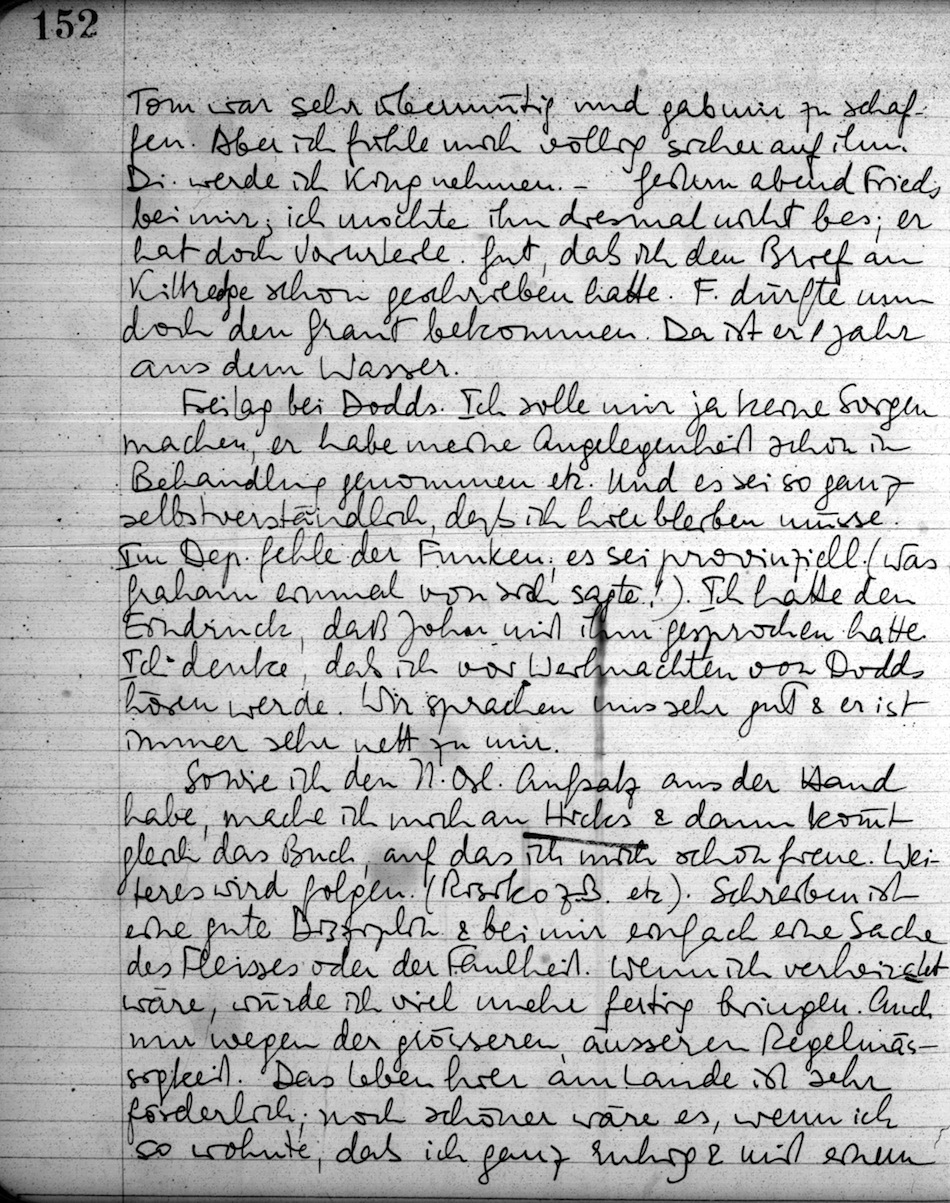 152
Tom war sehr übermütig und gab mir zu schaf-
fen. Aber ich fühle mich völlig sicher auf ihm.
Di. werde ich King nehmen. – Gestern abend Frieds
bei mir; ich mochte ihn diesmal nicht bes; er
hat doch Vorurteile. Gut, daß ich den Brief an
schon geschrieben hatte. F. dürfte nun
doch den Grant bekommen. Da ist er 1 Jahr
aus dem Wasser.
Freitag bei Dodds. Ich solle mir ja keine Sorgen
machen, er habe meine Angelegenheit schon in
Behandlung genommen etc. Und es sei so ganz
selbstverständlich, daß ich hier bleiben müsse.
Im Dep. fehle der Funken; es sei provinziell. (Was
Graham einmal von sich sagte!). Ich hatte den
Eindruck, daß John mit ihm gesprochen hatte.
Ich denke, daß ich vor Weihnachten von Dodds
hören werde. Wir sprachen uns sehr gut & er ist
immer sehr nett zu mir.
Sowie ich den N. Ösl. Aufsatz aus der Hand
habe, mache ich mich an Hicks & dann kom̄t
gleich das Buch, auf das ich mich schon freue. Wei-
teres wird folgen. (Risiko z.B. etc). Schreiben ist
eine gute Disziplin & bei mir einfach eine Sache
des Fleisses oder der Faulheit. Wenn ich verheiratet
wäre, würde ich viel mehr fertig bringen. Auch
nur wegen der grösseren, äusseren Regelmäs-
sigkeit. Das Leben hier am Lande ist sehr
förderlich; noch schöner wäre es, wenn ich
so wohnte, daß ich ganz ruhig & mit einem